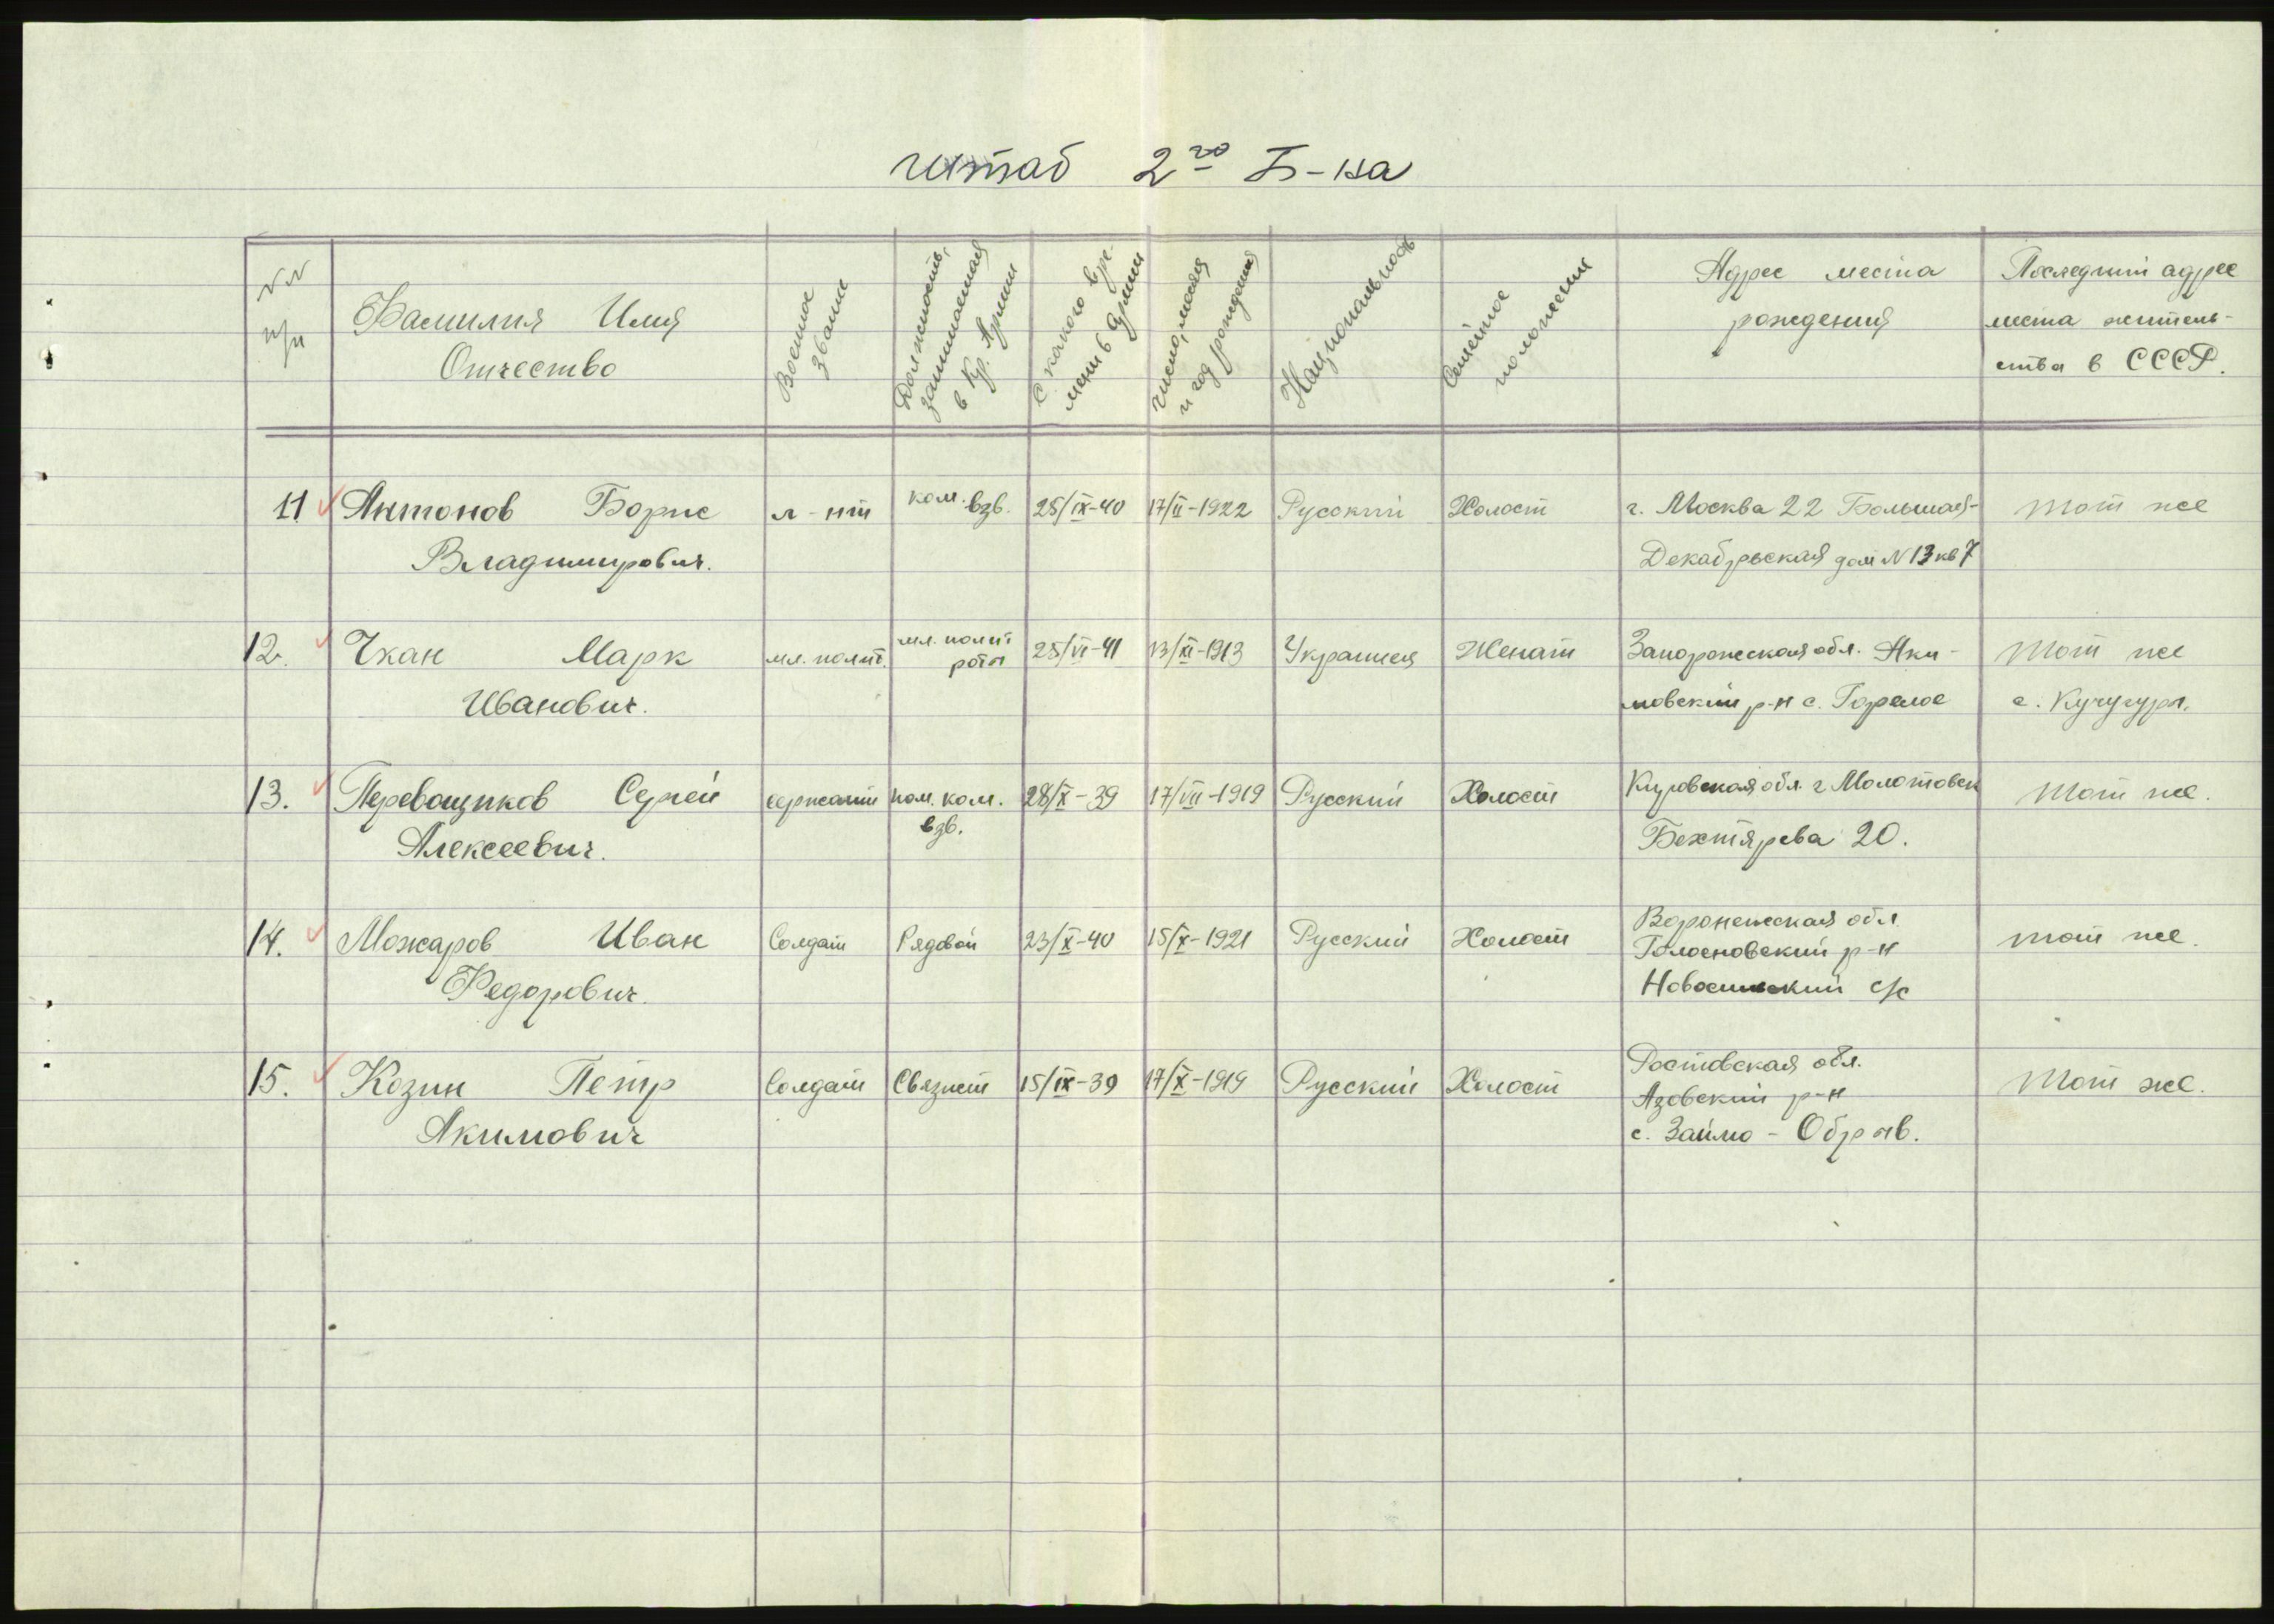 штаб 2го Б-на
№№ п/п
Фамилия Имя
Отчество
Военное
звание
Должность,
занимаемая
в Кр. Армии
С какого вре-
мени в Армии
число, месяц
и год рождения
Национальность
Семейное
положение
Адрес места
рождения
Последний адрес
места житель-
ства в СССР.
11 Антонов Борис л-нт ком. взв. 25/IX-40 17/II-1922 Русский Холост г. Москва 22 Большая- Тот же
Владимирович. Декабрьская дом N 13 кв 7
12. Чкан Марк мл. полит. мл. полит 25/VI-41 13/XI-1913 Украинец Женат Запорожская обл. Аки- Тот же
Иванович. роты мовский р-н с. Горелое с. Кучугуры.
13. Перевощиков Сергей сержант пом. ком. 28/X-39 17/VII-1919 Русский Холост Кировская обл. г Молотовск Тот же.
Алексеевич. взв. Бехтярева 20.
14. Можаров Иван Солдат Рядовой 23/X-40 15/X-1921 Русский Холост Воронежская обл Тот же.
Федорович. р-н
с/с
15. Козин Петр Солдат Связист 15/IX-39 17/X-1919 Русский Холост Ростовская обл. Тот же.
Акимович Азовский р-н
с. Займо-Обрыв.